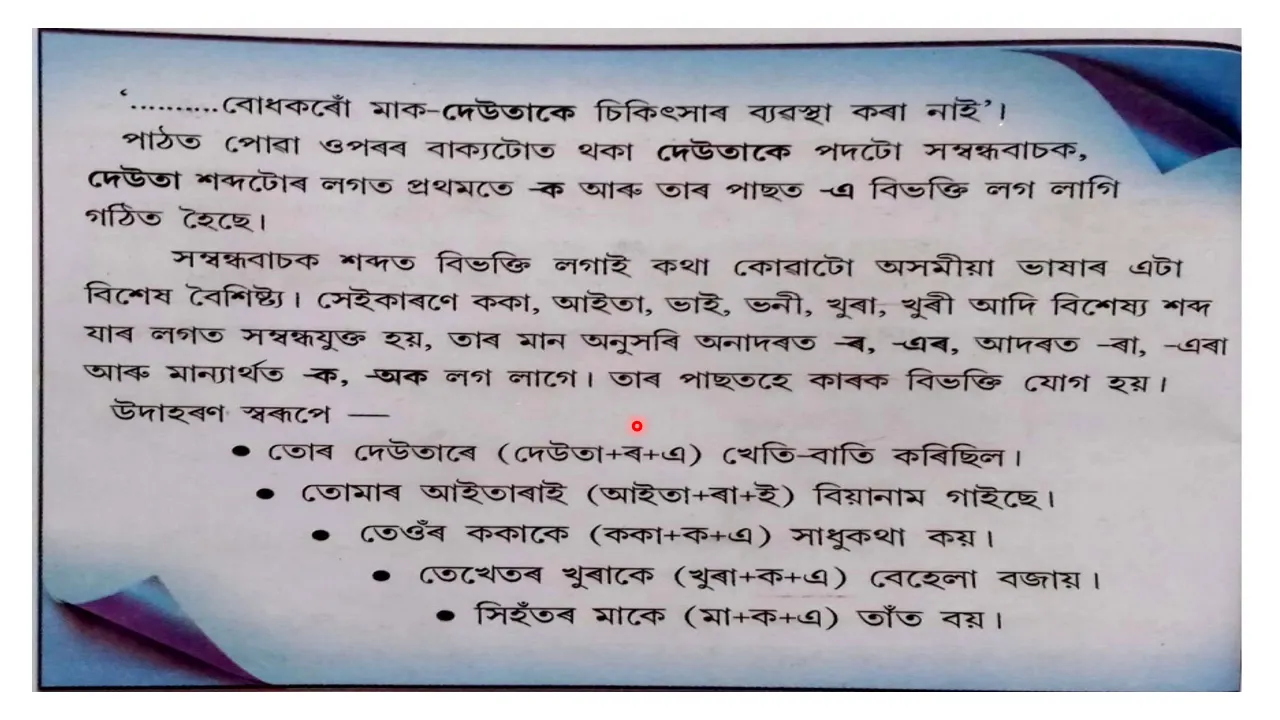 ‘..........বোধকৰোঁ মাক-দেউতাকে চিকিৎসাৰ ব্যৱস্থা কৰা নাই’।
পাঠত পোৱা ওপৰৰ বাক্যটোত থকা দেউতাকে পদটো সম্বন্ধবাচক,
দেউতা শব্দটোৰ লগত প্ৰথমতে -ক আৰু তাৰ পাছত -এ বিভক্তি লগ লাগি
গঠিত হৈছে।
সম্বন্ধবাচক শব্দত বিভক্তি লগাই কথা কোৱাটো অসমীয়া ভাষাৰ এটা
বিশেষ বৈশিষ্ট্য। সেইকাৰণে ককা, আইতা, ভাই, ভনী, খুৰা, খুৰী আদি বিশেষ্য শব্দ
যাৰ লগত সম্বন্ধযুক্ত হয়, তাৰ মান অনুসৰি অনাদৰত -ৰ, -এৰ, আদৰত -ৰা, -এৰা
আৰু মান্যাৰ্থত -ক, -অক লগ লাগে। তাৰ পাছতহে কাৰক বিভক্তি যোগ হয়।
উদাহৰণ স্বৰূপে —
• তোৰ দেউতাৰে (দেউতা+ৰ+এ) খেতি-বাতি কৰিছিল।
• তোমাৰ আইতাৰাই (আইতা+ৰা+ই) বিয়ানাম গাইছে।
• তেওঁৰ ককাকে (ককা+ক+এ) সাধুকথা কয়।
• তেখেতৰ খুৰাকে (খুৰা+ক+এ) বেহেলা বজায়।
• সিহঁতৰ মাকে (মা+ক+এ) তাঁত বয়।